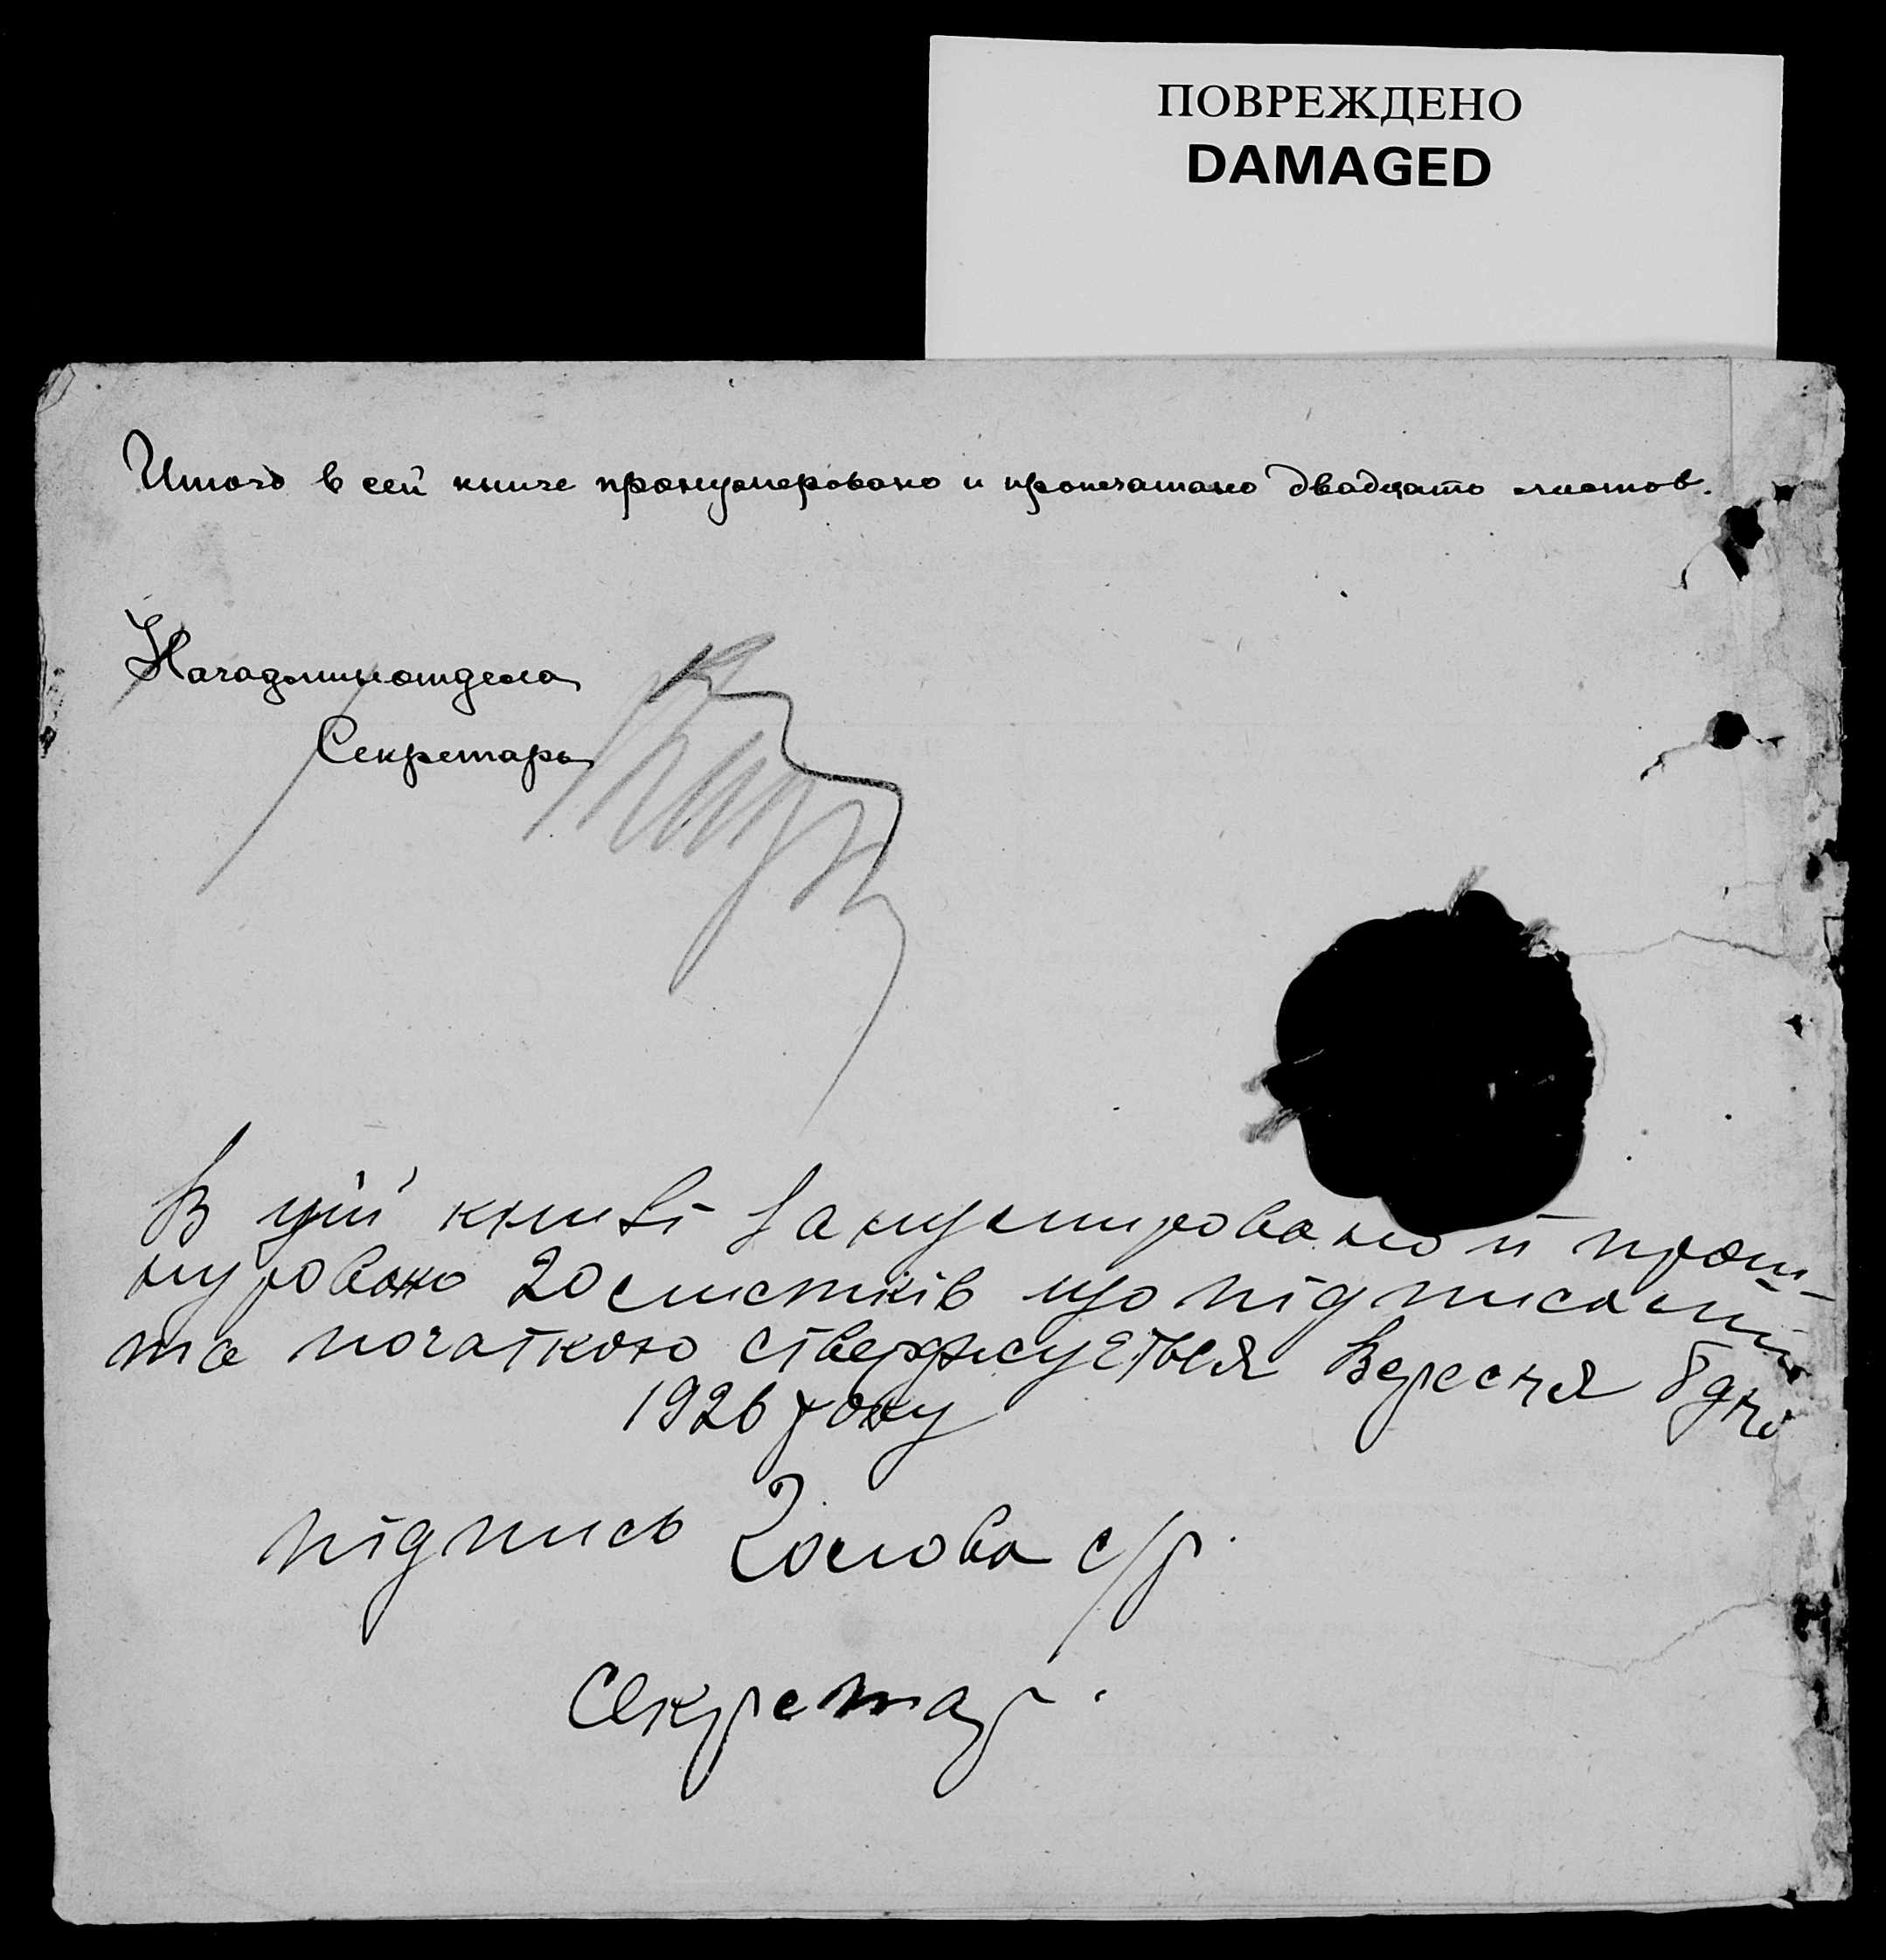 ПОВРЕЖДЕНО
DAMAGED
Итого в сей книге пронумеровано и пропечатано двадцать листов.
Начадминотдела
Секретарь
В цій книзі занумировано й прош-
нуровано 20 листків що підписом
та початкою стверджується Вересня 8 дня
1926 року
підпись Голова с/р.
Секретар.